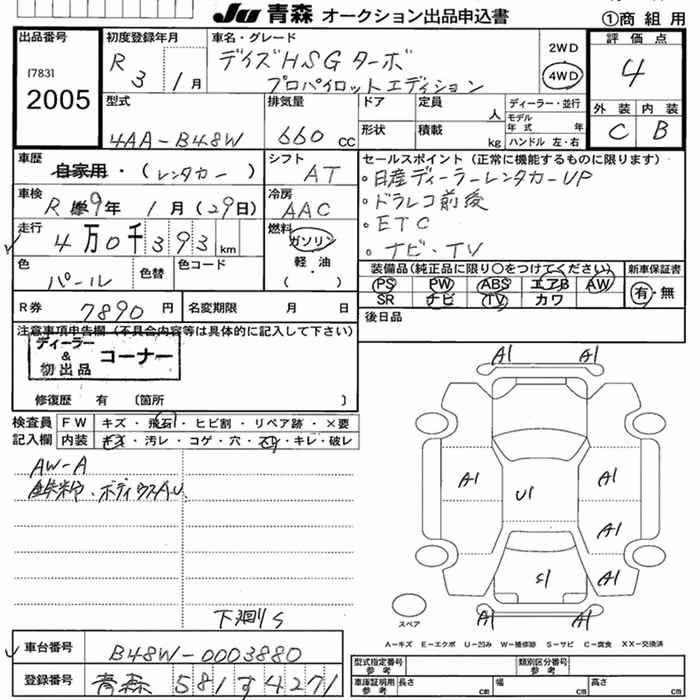 JU 青森 オークション出品申込書
①商 組 用
出品番号
17831
2005
初度登録年月
R 3 1月
車名・グレード
デイズ HSG ターボ
プロパイロット エディション
2WD
4WD
評価点
4
外装 内装
C B
型式
4AA-B48W
排気量
660 CC
ドア
定員
人
形状
積載
kg
ディーラー・並行
モデル
年式 年
ハンドル 左・右
車歴
自家用・(レンタカー)
シフト
AT
車検
R 9年 1月(29日)
冷房
AAC
走行
4万0千393km
燃料
ガソリン
軽・油
( )
色
パール
色替
色コード
R券
7890円
名変期限 月 日
セールスポイント(正常に機能するものに限ります)
・日産ディーラーレンタカーUP
・ドラレコ前後
・ETC
・ナビ・TV
装備品(純正品に限り○をつけてください)
PS PW ABS エアB AW
SR ナビ TV カワ
新車保証書
有・無
後日品
注意事項申告欄(不具合内容等は具体的に記入して下さい)
ディーラー
&
初出品
コーナー
修復歴 有 〔箇所 〕
検査員
記入欄
FW キズ・飛石・ヒビ割・リペア跡・×要
内装 キズ・汚レ・コゲ・穴・スレ・キレ・破レ
AW-A
ボディウスAU
下廻りS
A1 A1
A1
A1
U1
A1
S1
A1
A1 A1
スペア
A-キズ E-エクボ U-凹み W-補修跡 S-サビ C-腐食 XX-交換済
車台番号
B48W-0003880
登録番号
青森 581 す 4271
型式指定番号
参考
類別区分番号
参考
車庫証明用
参考
長さ cm
幅 cm
高さ cm